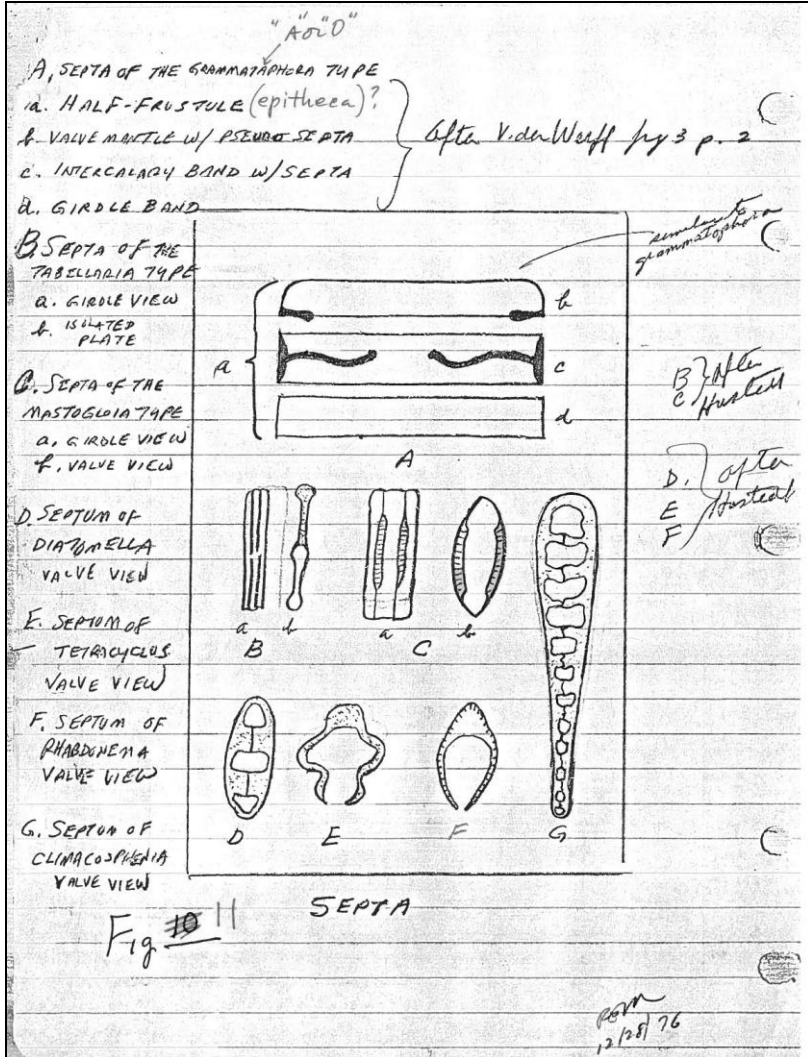 "A" or "O"
A, SEPTA OF THE GRAMMATAPHORA TYPE
a. HALF-FRUSTULE (epitheca)?
b. VALVE MANTLE W/ PSEUDO SEPTA
After V. der Werff fig 3 p. 2
c. INTERCALARY BAND W/ SEPTA
d. GIRDLE BAND
similar to
grammatophora
B. SEPTA OF THE
TABELLARIA TYPE
a. GIRDLE VIEW
b. ISOLATED
PLATE
C. SEPTA OF THE
MASTOGLOIA TYPE
a. GIRDLE VIEW
b. VALVE VIEW
D. SEPTUM OF
DIATOMELLA
VALVE VIEW
E. SEPTUM OF
TETRACYCLUS
VALVE VIEW
F. SEPTUM OF
RHABDONEMA
VALVE VIEW
G. SEPTUM OF
CLIMACOSPHENIA
VALVE VIEW
b
a
c
d
A
B
C
After
Hustedt
D.
E
F
after
Hustedt
a b
B
a b
C
D E F G
SEPTA
Fig 10 11
12/28/76